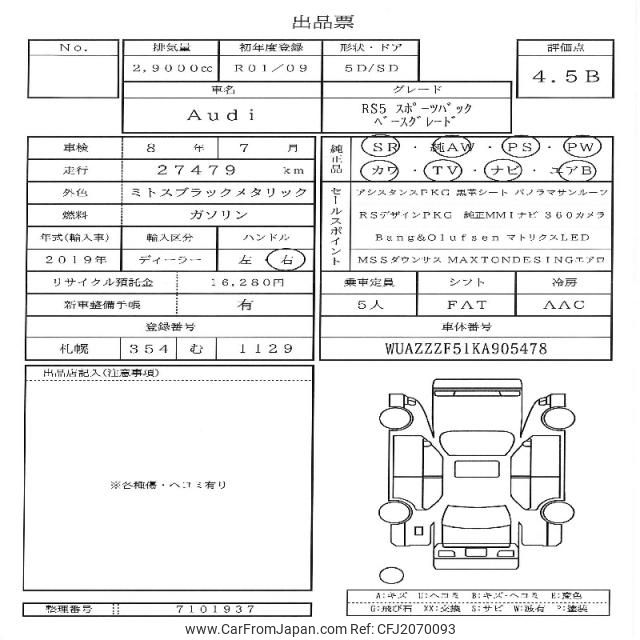 出品票
No. 排気量 初年度登録 形状・ドア 評価点
2,9000cc R01/09 5D/SD 4.5B
車名 グレード
Audi RS5 スポーツバック
ベースグレード
車検 8 年 7 月 純正品 SR ・ 純AW ・ PS ・ PW
走行 27479 km カワ ・ TV ・ ナビ ・ エアB
外色 ミトスブラックメタリック セールスポイント アシスタンスPKG 黒革シート パノラマサンルーフ
燃料 ガソリン RSデザインPKG 純正MMIナビ 360カメラ
年式(輸入車) 輸入区分 ハンドル Bang&Olufsen マトリクスLED
2019年 ディーラー 左・右 MSSダウンサス MAXTONDESINGエアロ
リサイクル預託金 16,280円 乗車定員 シフト 冷房
新車整備手帳 有 5人 FAT AAC
登録番号 車体番号
札幌 354 む 1129 WUAZZZF51KA905478
出品店記入(注意事項)
※各種傷・ヘコミ有り
A:キズ U:ヘコミ B:キズ・ヘコミ E:変色
G:飛び石 XX:交換 S:サビ W:波有 P:塗装
整理番号 7101937
www.CarFromJapan.com Ref: CFJ2070093